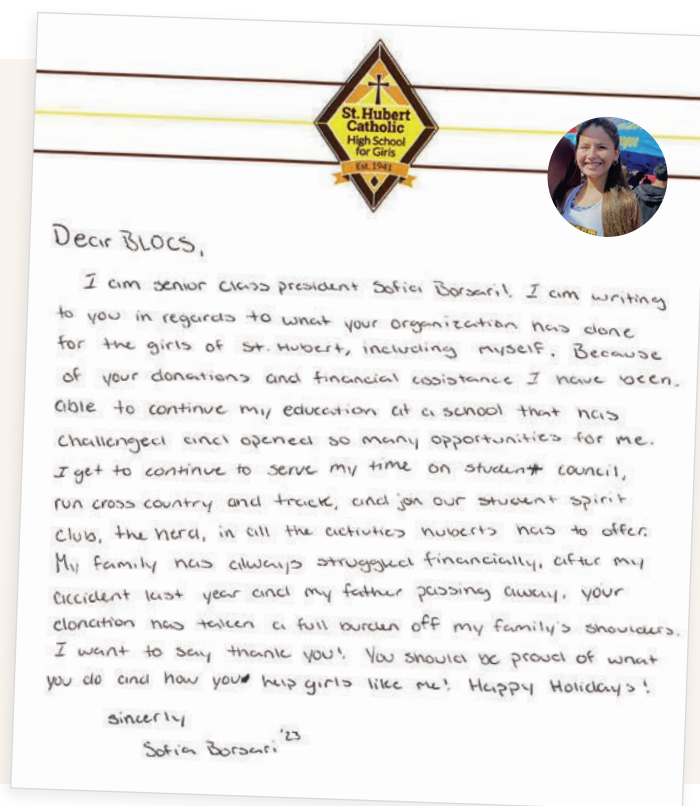 St. Hubert
Catholic
High School
for Girls
Est. 1941
Dear BLOCS,
I am senior class president Sofia Borsari!. I am writing
to you in regards to what your organization has done
for the girls of St. Hubert, including myself. Because
of your donations and financial assistance I have been.
able to continue my education at a school that has
challenged and opened so many opportunities for me.
I get to continue to serve my time on student council,
run cross country and track, and join our student spirit
club, the herd, in all the activities huberts has to offer.
My family has always struggled financially, after my
accident last year and my father passing away. your
donation has taken a full burden off my family's shoulders.
I want to say thank you! You should be proud of what
you do and how you help girls like me! Happy Holidays!
sincerly
Sofia Borsari '23